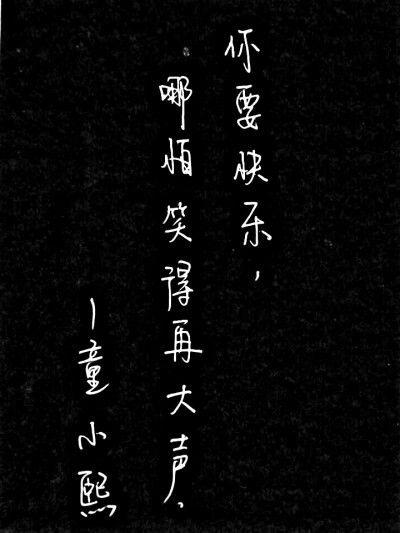 你要快乐，
哪怕笑得再大声。
—童小熙